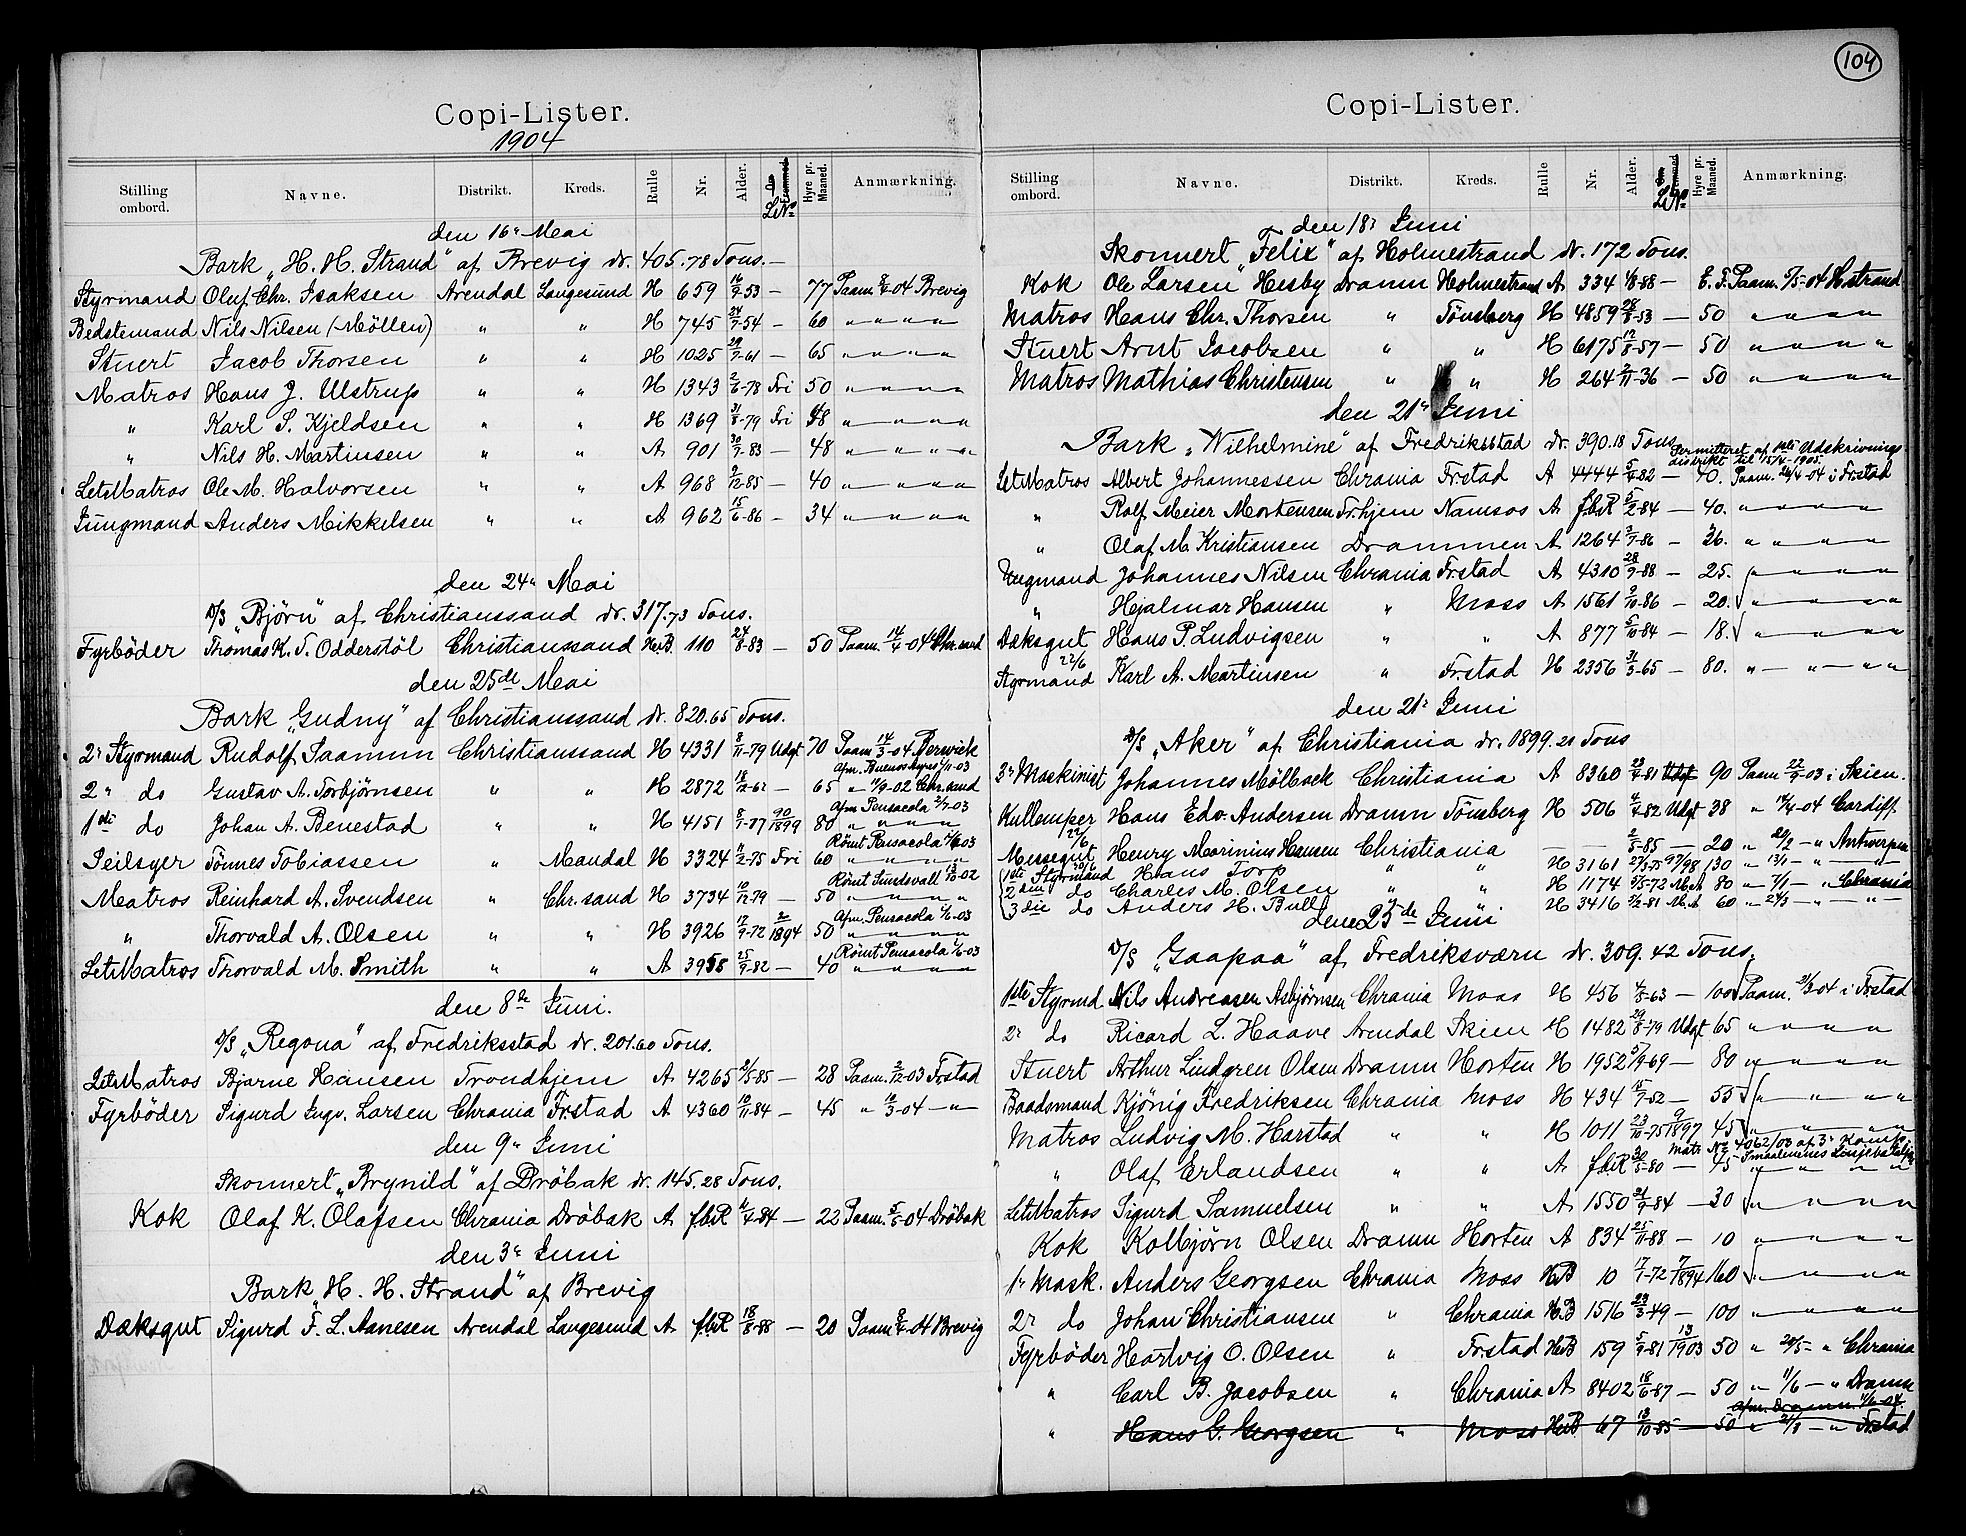 Copi-Lister.
1904
Stilling ombord. Navne. Distrikt. Kreds. Rulle Nr. Alder. Hyre pr. Maaned. Anmærkning.
den 16" Mai
Bark „H. H. Strand" af Brevig dr. 405.78 Tons. —
Styrmand Oluf Chr. Isaksen Arendal Langesund H 659 16/9-53 — 77 Paam. 04 Brevig
Bedstemand Nils Nilsen (Möllen) " " H 745 24/7-54 — 60 " " " "
Stuert Jacob Thorsen " " H 1025 29/7-61 — 65 " " " "
Matros Hans J. Ulstrup " " H 1343 2/6-78 Fri 50 " " " "
" Karl S. Kjeldsen " " H 1369 31/8-79 Fri 48 " " " "
" Nils H. Martinsen " " A 901 30/7-83 — 48 " " " "
LetMatros Ole M. Halvorsen " " A 968 9/12-85 — 40 " " " "
Jungmand Anders Mikkelsen " " A 962 15/6-86 — 34 " " " "
den 24" Mai
D/S „Bjørn" af Christianssand dr. 317.73 Tons.
Fyrböder Thomas K. T. Odderstöl Christianssand HerB. 110 24/8-83 — 50 Paam. 14/4-04 Chr.sand
den 25de Mai
Bark „Gudny" af Christianssand dr. 820.65 Tons.
2" Styrmand Rudolf Saamun Christianssand H 4331 8/11-79 Udgt 70 Paam. 14/3-04 Berwick
Afm. Buenos Ayres 11-03
2" do Gustav A. Torbjørnsen " " H 2872 18/12-62 — 65 " 11/9-02 Chr.sand
Afm. Pensacola 2/7-03
1ste do Johan A. Benestad " " H 4151 8/7-77 90/1899 80 " " " "
Römt Pensacola 03
Seilsyer Tönnes Tobiassen " Mandal H 3324 11/2-75 Fri 60 " " " "
Römt Sundsvall 10-02
Matros Reinhard A. Svendsen " Chr.sand H 3734 10/12-79 — 50 " " " "
Afm. Pensacola 03
" Thorvald A. Olsen " " H 3926 17/9-72 2/1894 50 " " " "
Römt Pensacola 03
LetMatros Thorvald M. Smith " " A 3958 25/9-82 — 40 " " " "
den 8de Juni.
D/S „Regona" af Fredriksstad dr. 201.60 Tons.
LetMatros Bjarne Hansen Trondhjem A 4265 5-85 — 28 Paam. 2/12-03 Frstad
Fyrböder Sigurd Ingv. Larsen Chrania Frstad A 4360 10/11-84 — 45 " 10/3-04 — " —
den 9" Juni
Skonnert „Brynild" af Dröbak dr. 145.28 Tons.
Kok Olaf K. Olafsen Chrania Dröbak A fbR 11/4-84 — 22 Paam. 5/5-04 Dröbak
den 3" Juni
Bark „H. H. Strand" af Brevig
Dæksgut Sigurd F. L. Aanesen Arendal Langesund A fbR 18/8-88 — 20 Paam. 04 Brevig
104
Copi-Lister.
Stilling ombord. Navne. Distrikt. Kreds. Rulle Nr. Alder. Hyre pr. Maaned. Anmærkning.
den 18" Juni
Skonnert „Felix" af Holmestrand dr. 172 Tons.
Kok Ole Larsen Hesby Dramn Holmestrand A 334 88 — E. F. Paam. 5-04 H.strand
Matros Hans Chr. Thorsen " Tönsberg H 4859 28/8-53 — 50 " " " "
Stuert Arnt Jacobsen " " H 6175 12/8-57 — 50 " " " "
Matros Mathias Christensen " " H 264 2/11-36 — 50 " " " "
den 21" Juni
Bark „Wilhelmine" af Fredriksstad dr. 390.18 Tons
Permitteret af 1ste Udskrivnings-
distrikt til 15/4-1905.
LetMatros Albert Johannessen Chrania Frstad A 4444 82 — 40. Paam. 26/4-04 i Frstad
" Rolf Meier Mortensen Tr.hjem Namsos A fbR 5/2-84 — 40. " " " "
" Olaf M. Kristiansen Drammen A 1264 3/7-86 — 36. " " " "
Ungmand Johannes Nilsen Chrania Frstad A 4310 28/7-88 — 25. " " " "
" Hjalmar Hansen " Moss A 1561 9/10-86 — 20. " " " "
Dæksgut Hans P. Ludvigsen " " A 877 5/10-84 — 18. " " " "
22/6
Styrmand Karl A. Martinsen " Frstad H 2356 31/3-65 — 80. " — " — " "
den 21" Juni
D/S „Aker" af Christiania dr. 1899.21 Tons
3" Maskinist Johannes Mölbæk Christiania A 8360 23/4-81 Udgt 90 Paam. 22/9-03 i Skien.
Kullemper Hans Edv. Andersen Dramn Tönsberg H 506 4/4-82 Udgt 38 " 04 Cardiff
22/6
Messegut Henry Marinius Hansen Christiania — — 2/5-85 — 20 " 20/2 — " Antwerpen
1ste Styrmand Hans Torp " " H 3161 27/3-75 97/98 130 " 13/1 — " —
2den do Charles M. Olsen " " H 1174 5-72 M.A 80 " 7/1 — " Chrania
3die do Anders H. Bull " " H 3416 2-81 M.A 60 " 24/3 — " —
den 23de Juni
D/S „Gaapaa" af Fredriksværn dr. 309.42 Tons.
1ste Styrmd Nils Andreasen Asbjørnsen Chrania Moss H 456 4/8-63 — 100 Paam. 21/3 04 i Frstad
2" do Ricard L. Haave Arendal Skien H 1482 29/8-79 Udgt 65 " " " "
Stuert Arthur Lindgren Olsen Dramn Horten H 1952 5/9-69 — 80 " " " "
Baadsmand Kjönig Fredriksen Chrania Moss H 434 15/7-52 — 55 " " " "
Matros Ludvig M. Harstad " " H 1011 23/10-75 9/1897 45 " " " "
Matr. No 4062/03 af 3" Komp. Smaalenenes Linjebataljon
" Olaf Erlandsen " " A fbR 30/5-80 — 45 " " " "
LetMatros Sigurd Samuelsen " " A 1550 21/9-84 — 30 " " " "
Kok Kolbjörn Olsen Dramn Horten A 834 25/11-88 — 10 " " " "
1" Mask. Anders Georgsen Chrania Moss H.B 10 1/1-72 7/1894 160 " " " "
2" do Johan Christiansen " Chrania H.B 1516 23/3-49 — 100 " " " "
Fyrböder Hartvig O. Olsen " Frstad H.B 159 5/9-81 13/1903 50 " 20/5 — " Chrania
" Carl B. Jacobsen " Chrania A 8402 18/6-87 — 50 " 11/6 — " Dramn
Afm. Dramn. 11/6-04
" Hans G. Georgsen " Moss HerB 67 13/10-85 — 50 " 21/3 — " Frstad